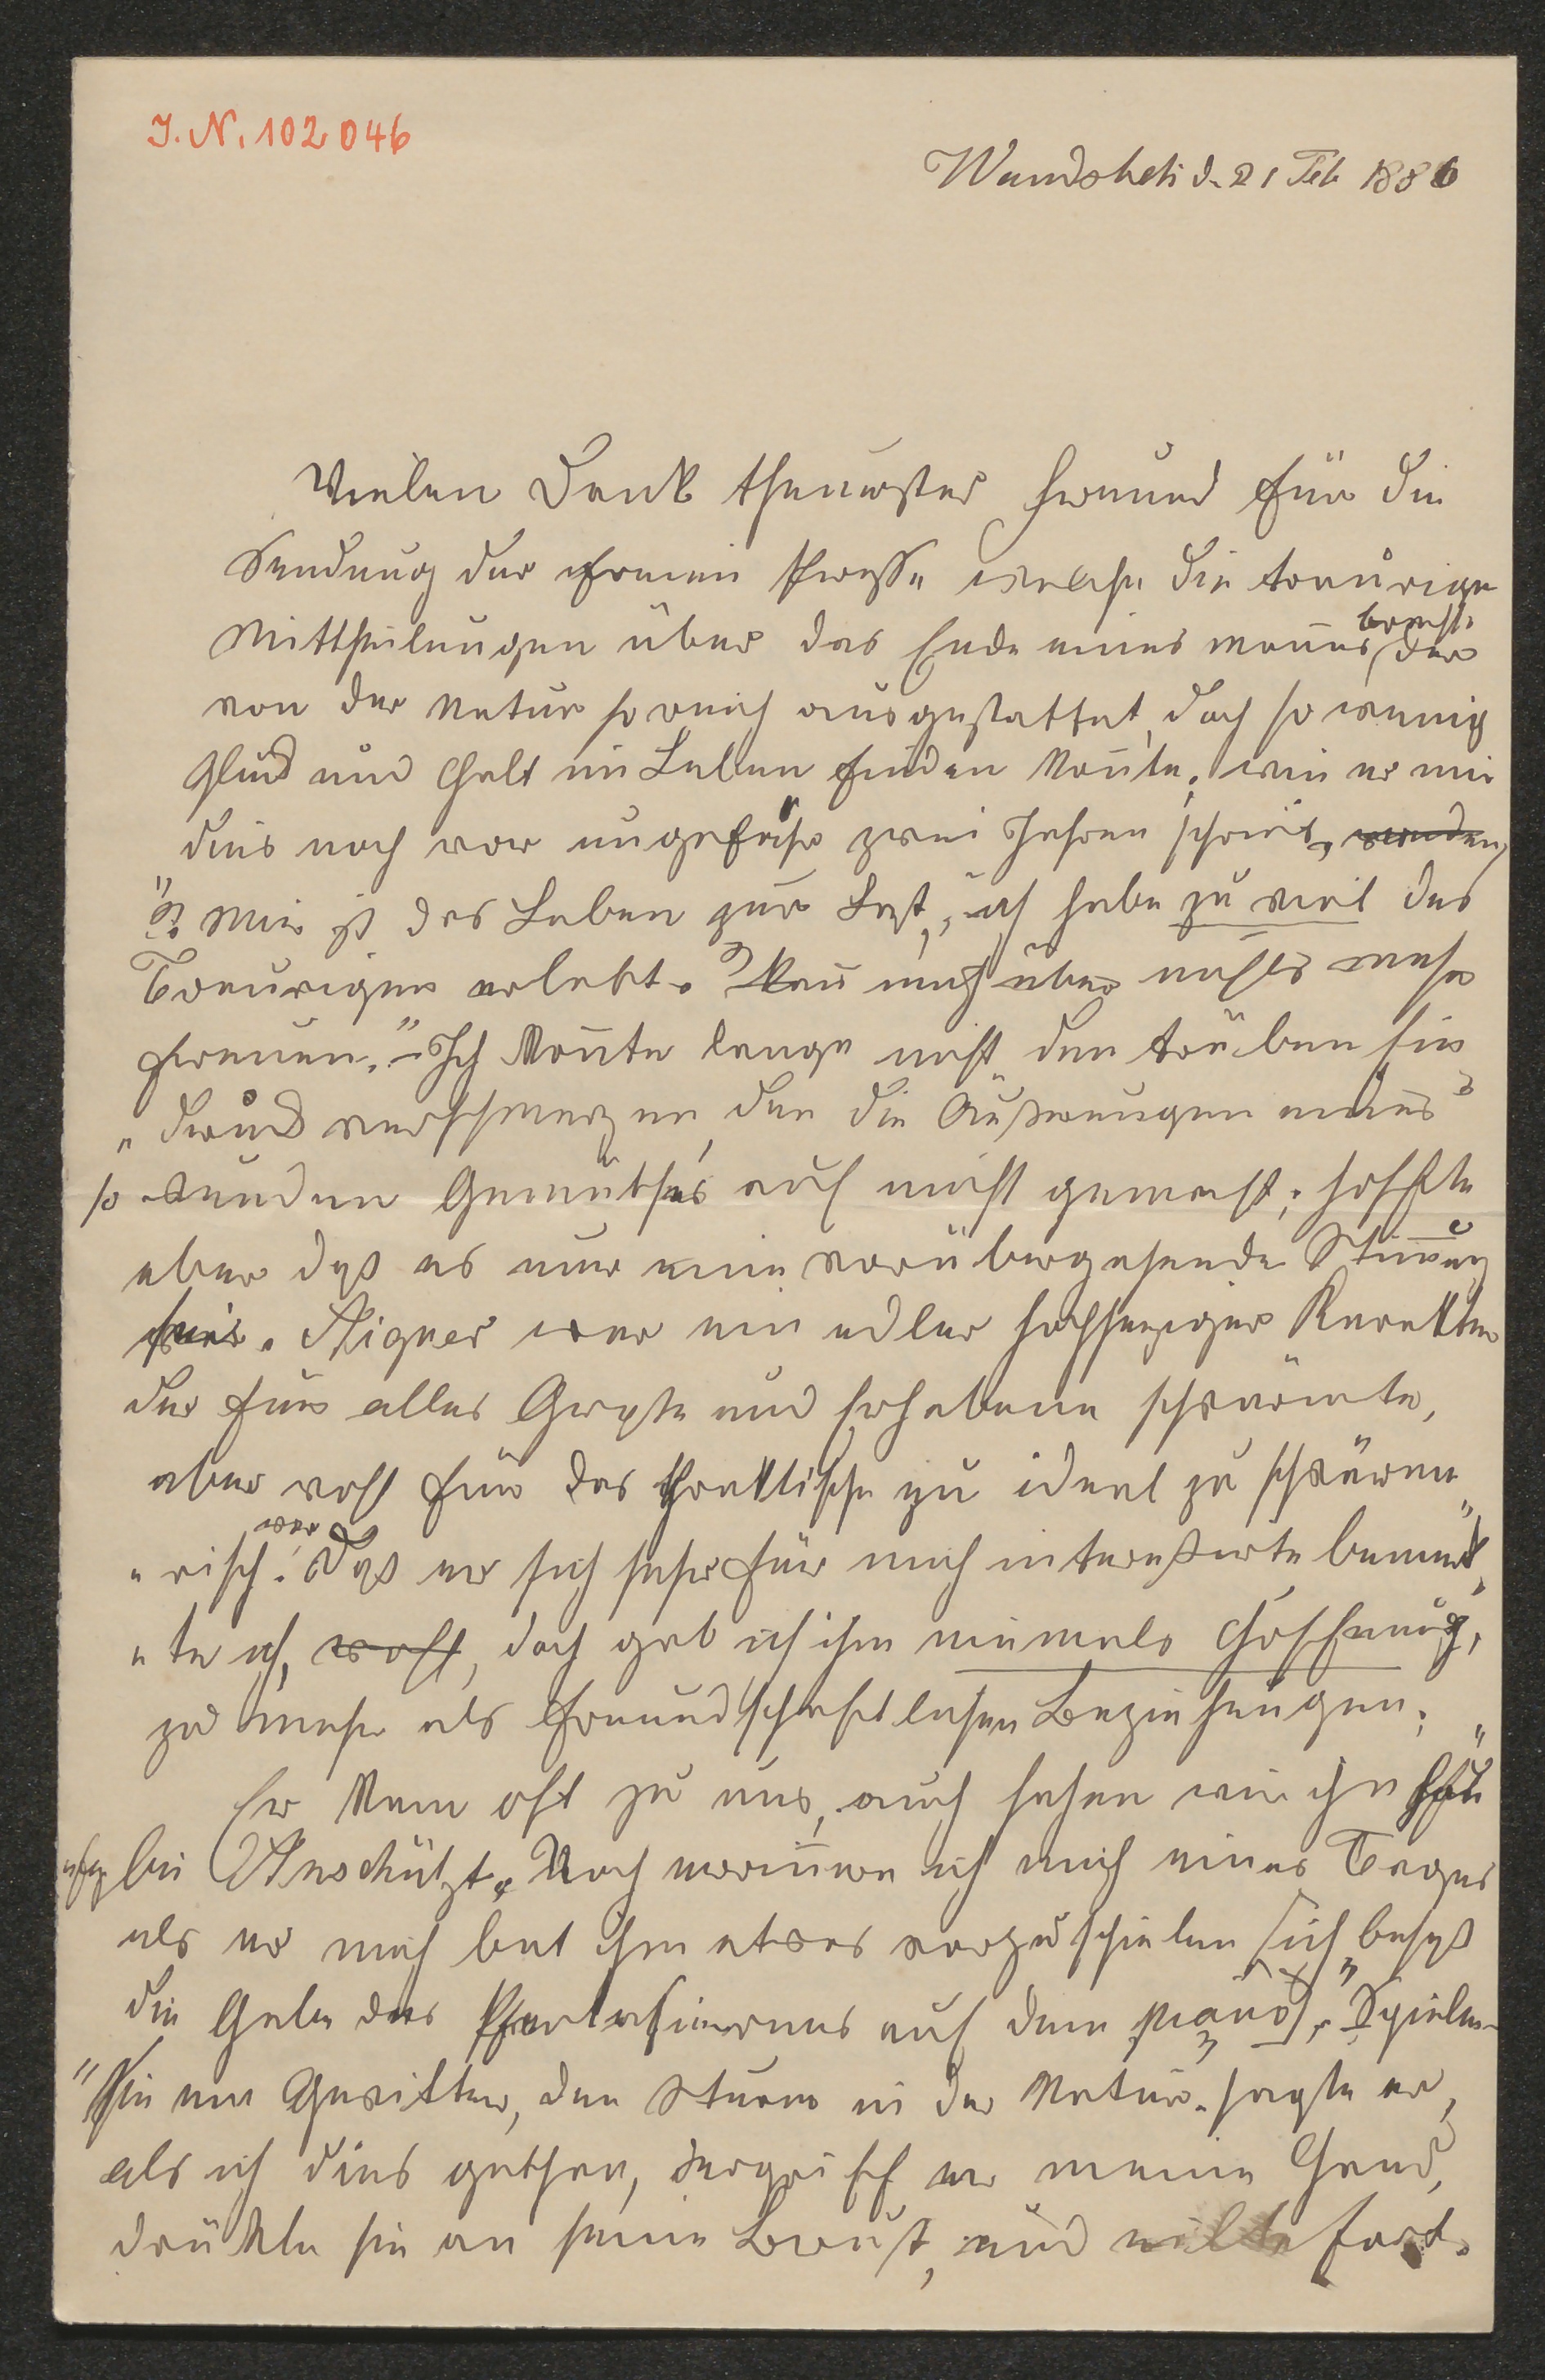 I. N. 102046
Wandsbek d. 21 Feb 1886
Vielen Dank theuerster Freund für die
Sendung der freien Presse welche die traurige
Mittheilungen über das Ende eines Mannes brachte der
von der Natur so reich ausgestattet, doch so wenig
Glück und Halt im Leben finden konnte; wie er mir
dies noch vor ungefähr zwei Jahren schrieb,
"Mir ist das Leben zur Last, ich habe zu viel des
Traurigen erlebt. Kann mich über nichts mehr
freuen." – Ich konnte lange nicht den trüben Ein
"druck verschmerzen, den die Äußerungen eines
so Gemüthes auf mich gemacht; hoffte
aber daß es nur eine vorübergehende Stimmung
sei. Aigner war ein edler hochherziger Karakter
der für alles Große und Erhabene schwärmte,
aber wohl für das Praktische zu ideal zu schwärme"
"risch war. Daß er sich sehr für mich interessirte bemerk"
"te ich, wohl, doch gab ich ihm niemals Hoffnung,
zu mehr als freundschaftlichen Beziehungen.
Er kam oft zu uns, auch sahen wir ihn häu"
"fig bei Anschütz. Noch erinnere ich mich eines Tages
als er mich bat ihm etwas vorzuspielen [ich besaß
die Gabe des Phantasierens auf dem piano]. Spielen
"Sie ein Gewitter, den Sturm in der Natur. sagte er,
als ich dies gethan, ergriff er meine Hand,
drükte sie an seine Brust, und eilte fort.